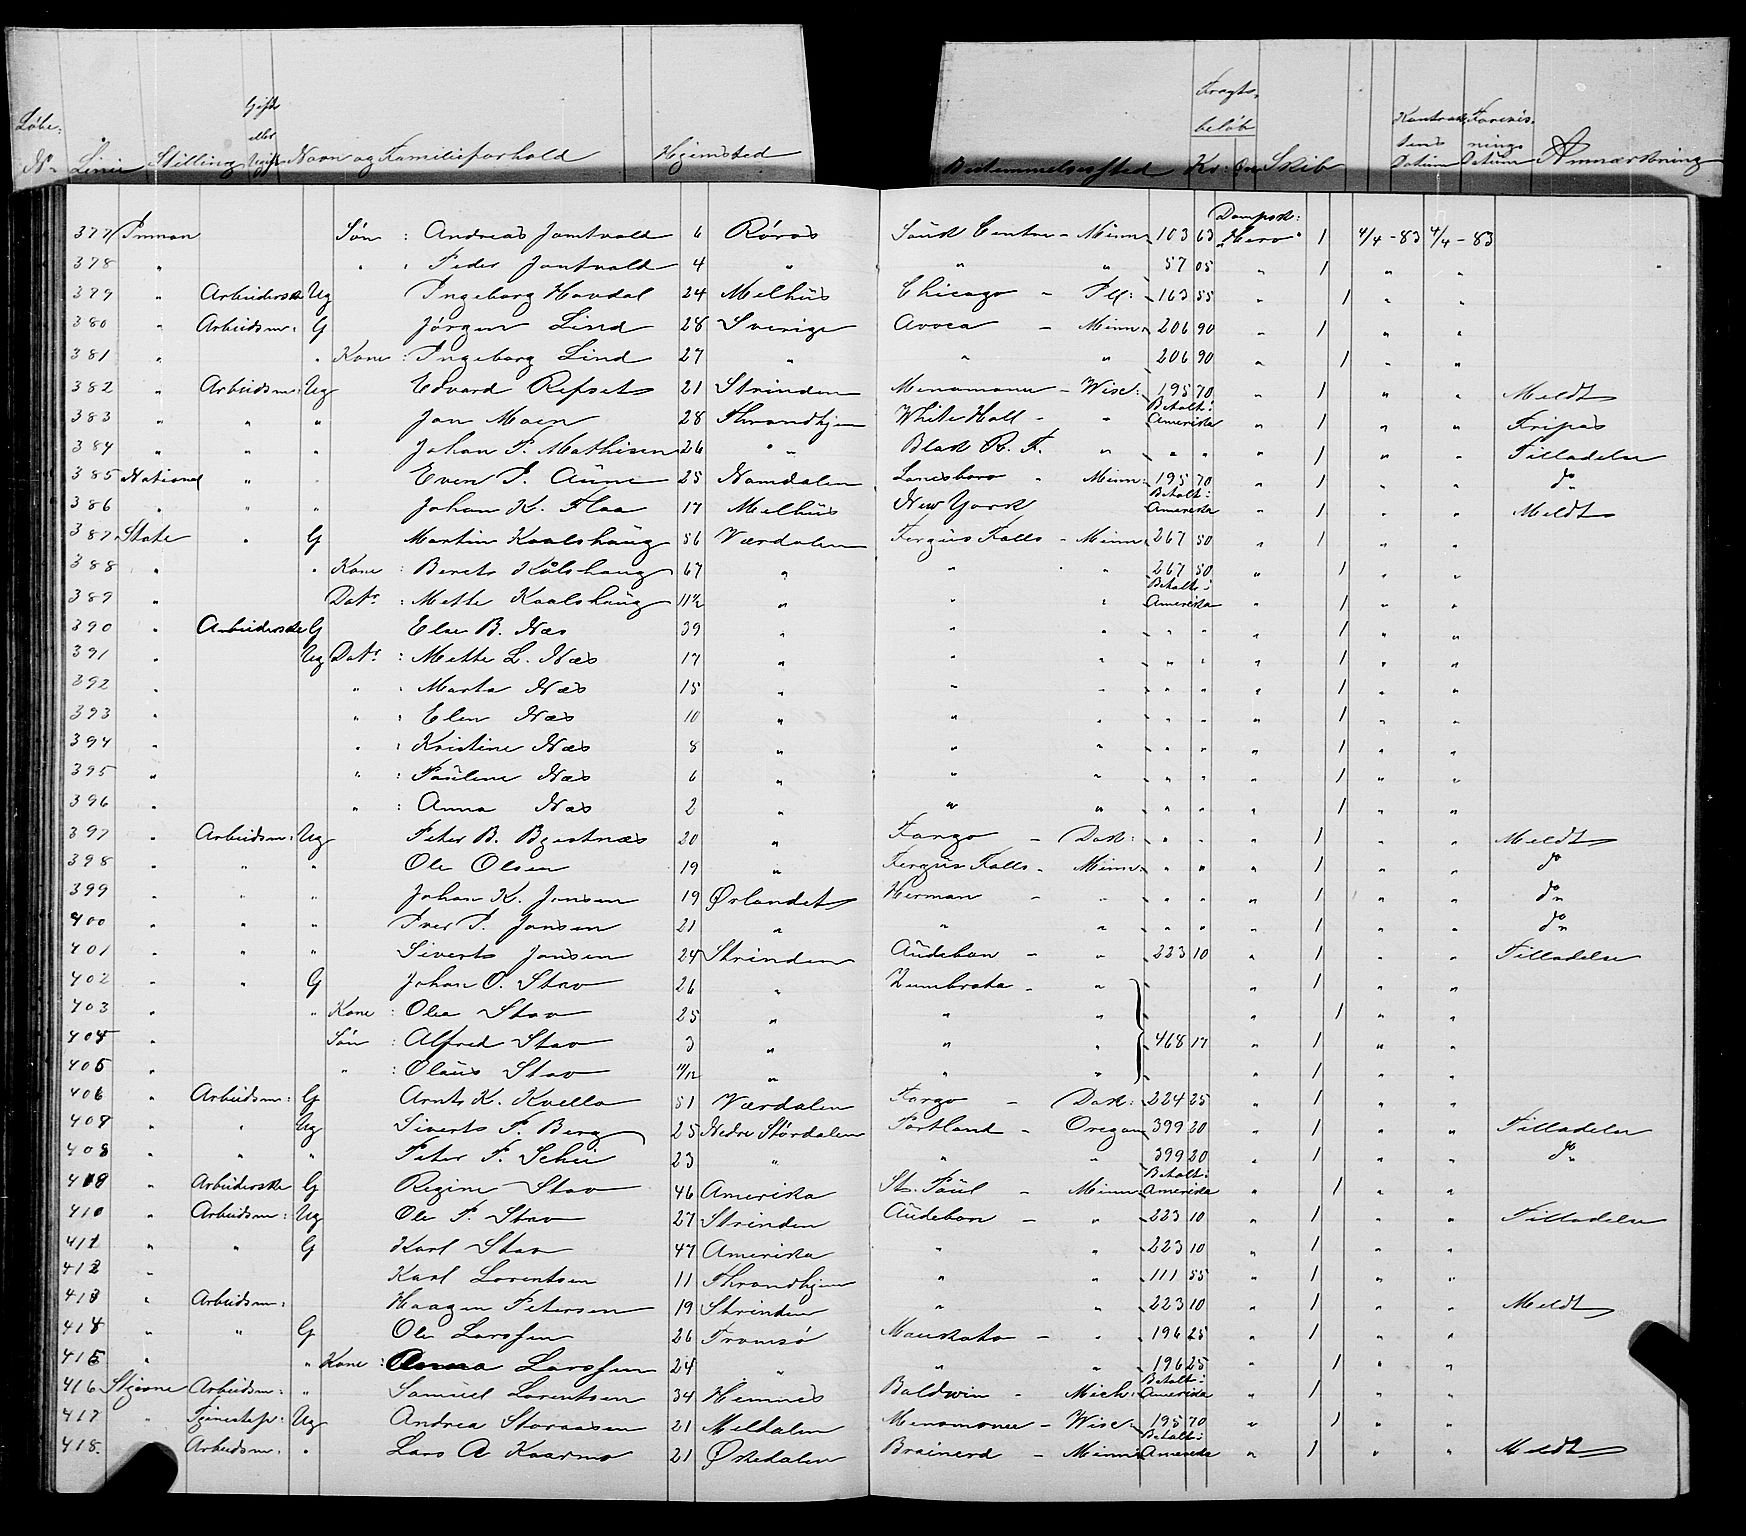 Løbe: No Linie Stilling Gift eller Ugift Navn og Familieforhold Hjemsted Bestemmelsessted Fragtbeløb Kr: Øre Skib Kontraktens Datum Datum Anmærkning
377 Inman Søn : Andreas Jamtvold 6 Røros Sauk Centre - Minn 103 63 Dampsk: "Hero" 1 4/4-83 4/4-83
378 " " : Peder Jamtvold 4 " " " 57 05 " 1 " "
379 " Arbeiderske Ug Ingeborg Havdal 24 Melhus Chicago - Ill: 163 55 " 1 " "
380 " Arbeidsm: G Jørgen Lind 28 Sverige Avoca - Minn: 206 90 " 1 " "
381 " " Kone : Ingeborg Lind 27 " " " 206 90 " 1 " "
382 " Arbeidsm: Ug Edvard Refset 21 Strinden Menomonee - Wisc: 195 70 " 1 " " Meldt
383 " " " Jon Moen 28 Throndhjem White Hall - " Betalt: Amerika " 1 " " Fripas
384 " " " Johan P. Mathisen 26 " Black R. F. " " " " 1 " " Tilladelse
385 National " " Even P. Aune 25 Namdalen Lanesboro " Minn: 195 70 " 1 " " do
386 " " " Johan K. Flaa 17 Melhus New York Betalt: Amerika " 1 " " Meldt
387 State " G Martin Kaalshaug 56 Værdalen Fergus Falls - Minn: 267 50 " 1 " "
388 " " Kone : Berets Kålshaug 67 " " " 267 50 " 1 " "
389 " Datr : Mette Kaalshaug 11½ " " " Betalt: Amerika " 1 " "
390 " Arbeiderske G Else B. Næs 39 " " " " " " 1 " "
391 " Ug Datr : Mette L. Næs 17 " " " " " " 1 " "
392 " " : Marta Næs 15 " " " " " " 1 " "
393 " " : Elen Næs 10 " " " " " " 1 " "
394 " " : Kristine Næs 8 " " " " " " 1 " "
395 " " : Pauline Næs 6 " " " " " " 1 " "
396 " " : Anna Næs 2 " " " " " " 1 " "
397 " Arbeidsm: Ug Peter B. Bjertnæs 20 " Fargo - Dak: " " " 1 " " Meldt
398 " " " Ole Olsen 19 " Fergus Falls - Minn: " " " 1 " " do
399 " " " Johan K. Jonsen 19 Ørlandet Herman - " " " " 1 " " do
400 " " " Iver P. Jonsen 21 " " " " " " 1 " " do
401 " " " Siverts Jonsen 24 Strinden Audebon - " 223 10 " 1 " " Tilladelse
402 " " G Johan O. Stav 26 " Zumbrota - " " 1 " "
403 " " Kone : Olea Stav 25 " " " " 1 " "
404 " Søn : Alfred Stav 3 " " " 468 17 " 1 " "
405 " " : Olaus Stav 11/12 " " " " 1 " "
406 " Arbeidsm: G Arnts K. Kvello 51 Værdalen Fargo - Dak: 224 25 " 1 " "
407 " " Ug Siverts P. Berg 25 Nedre Størdalen Portland - Oregon 399 20 " 1 " " Tilladelse
408 " " " Peter P. Schei 23 " " " 399 20 " 1 " " do
409 " Arbeiderske G Regine Stav 46 Amerika St. Paul - Minn: Betalt: Amerika " 1 " "
410 " Arbeidsm: Ug Ole P. Stav 27 Strinden Audebon - " 223 10 " 1 " " Tilladelse
411 " " G Karl Stav 47 Amerika " " 223 10 " 1 " "
412 " Karl Lorentsen 11 Throndhjem " " 111 55 " 1 " "
413 " Arbeidsm: Haagen Petersen 19 Strinden " " 223 10 " 1 " " Meldt
414 " " G Ole Larssen 26 Tromsø Mankato - " 196 25 " 1 " "
415 " " Kone : Anna Larssen 24 " " " 196 25 " 1 " "
416 Stjerne Arbeidsm: " Samuel Lorentsen 34 Hemnes Baldwin - Mich: Betalt: Amerika " 1 " "
417 " Tjenestep: Ug Andrea Storaasen 21 Meldalen Menomonee - Wisc: 195 70 " 1 " "
418. Arbeidsm: " Lars A Kaarmo 21 Ørkedalen Brainerd - Minn: Betalt: Amerika " 1 " " Meldt